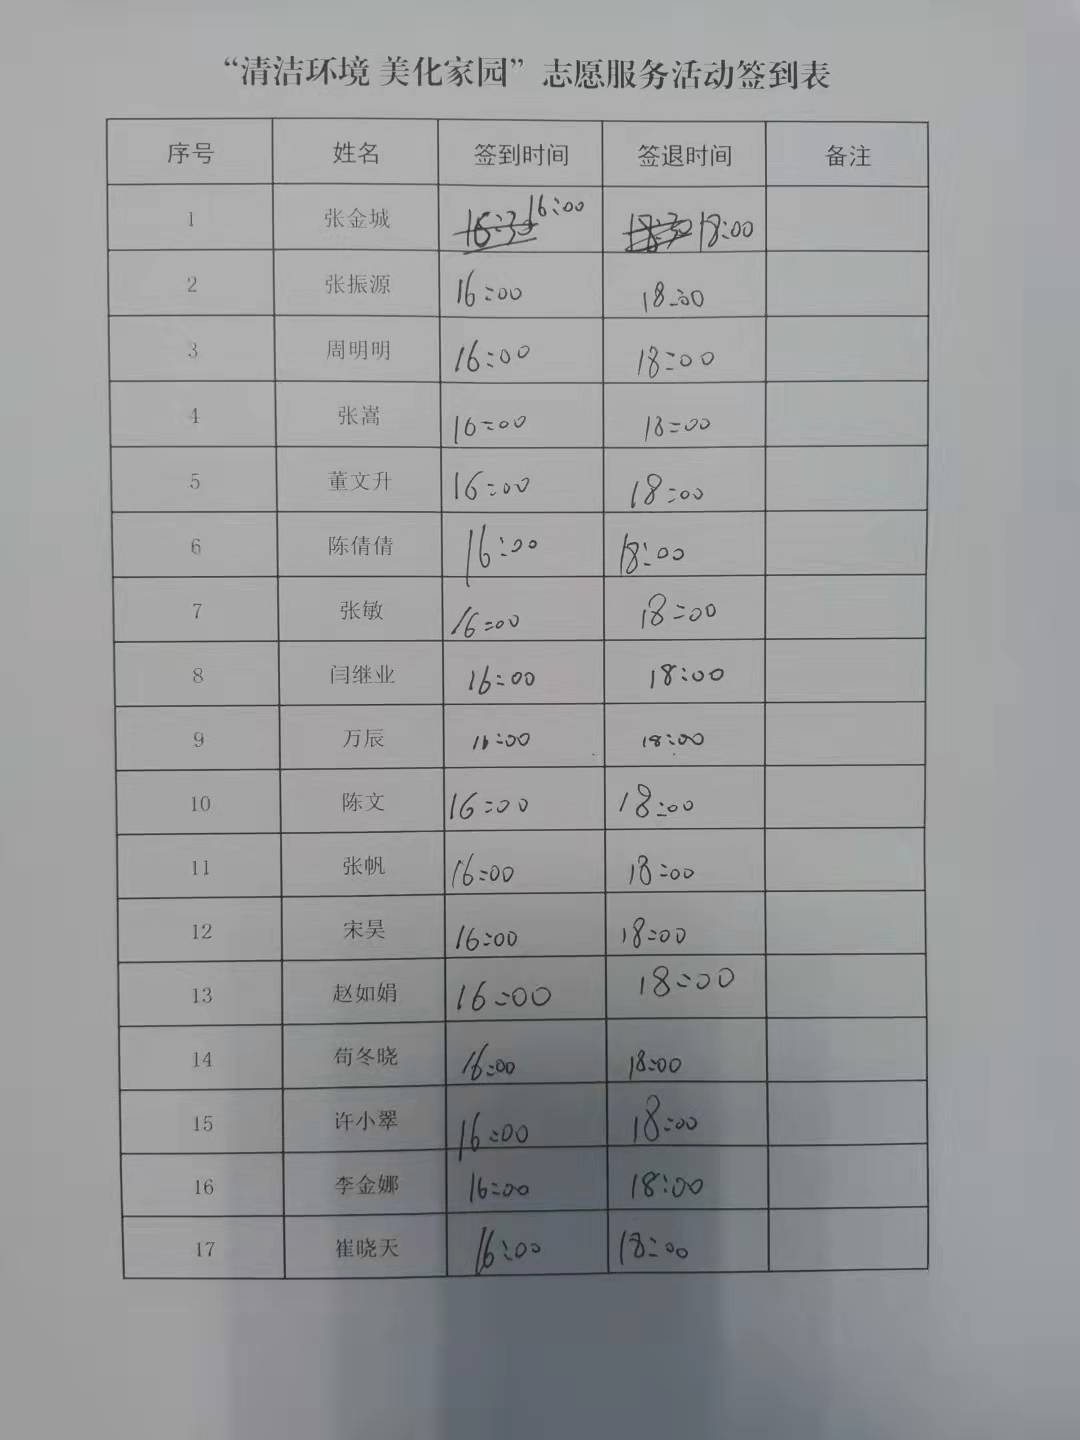 “清洁环境 美化家园”志愿服务活动签到表
序号 姓名 签到时间 签退时间 备注
1 张金城 16:30 16:00 18:30 18:00
2 张振源 16:00 18:00
3 周明明 16:00 18:00
4 张嵩 16:00 18:00
5 董文升 16:00 18:00
6 陈倩倩 16:00 18:00
7 张敏 16:00 18:00
8 闫继业 16:00 18:00
9 万辰 16:00 18:00
10 陈文 16:00 18:00
11 张帆 16:00 18:00
12 宋昊 16:00 18:00
13 赵如娟 16:00 18:00
14 苟冬晓 16:00 18:00
15 许小翠 16:00 18:00
16 李金娜 16:00 18:00
17 崔晓天 16:00 18:00